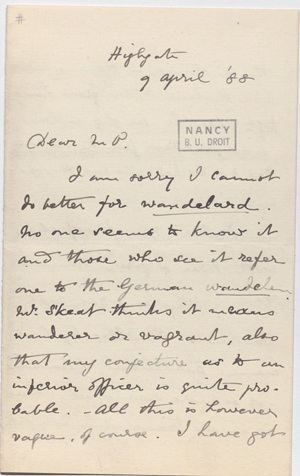 #
Highgate
9 April '88
NANCY
B. U. DROIT
Dear M P.
I am sorry I cannot
do better for wandelard.
No one seems to know it
and those who see it refer
one to the German wandeln.
Mr. Skeat thinks it means
wanderer or vagrant, also
that my conjecture as to an
inferior officer is quite pro-
bable. - All this is however
vague, of course. I have got